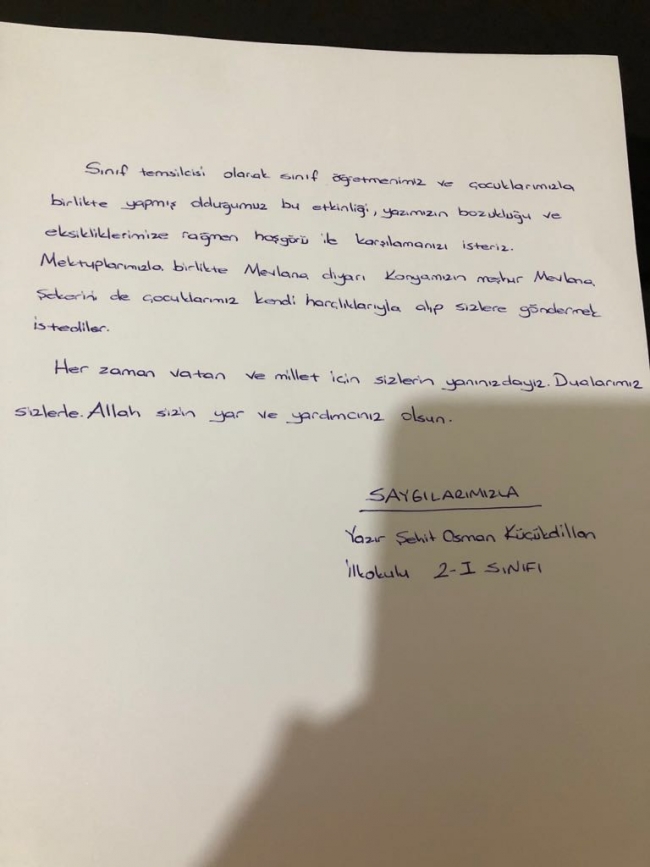 Sınıf temsilcisi olarak sınıf öğretmenimiz ve çocuklarımızla
birlikte yapmış olduğumuz bu etkinliği, yazımızın bozukluğu ve
eksikliklerimize rağmen hoşgörü ile karşılamanızı isteriz.
Mektuplarımızla birlikte Mevlana diyarı Konyamızın meşhur Mevlana
Şekerini de çocuklarımız kendi harçlıklarıyla alıp sizlere göndermek
istediler.
Her zaman vatan ve millet için sizlerin yanınızdayız. Dualarımız
sizlerle. Allah sizin yar ve yardımcınız olsun.
SAYGILARIMIZLA
Yazır Şehit Osman Küçükdillan
İlkokulu 2-I SINIFI